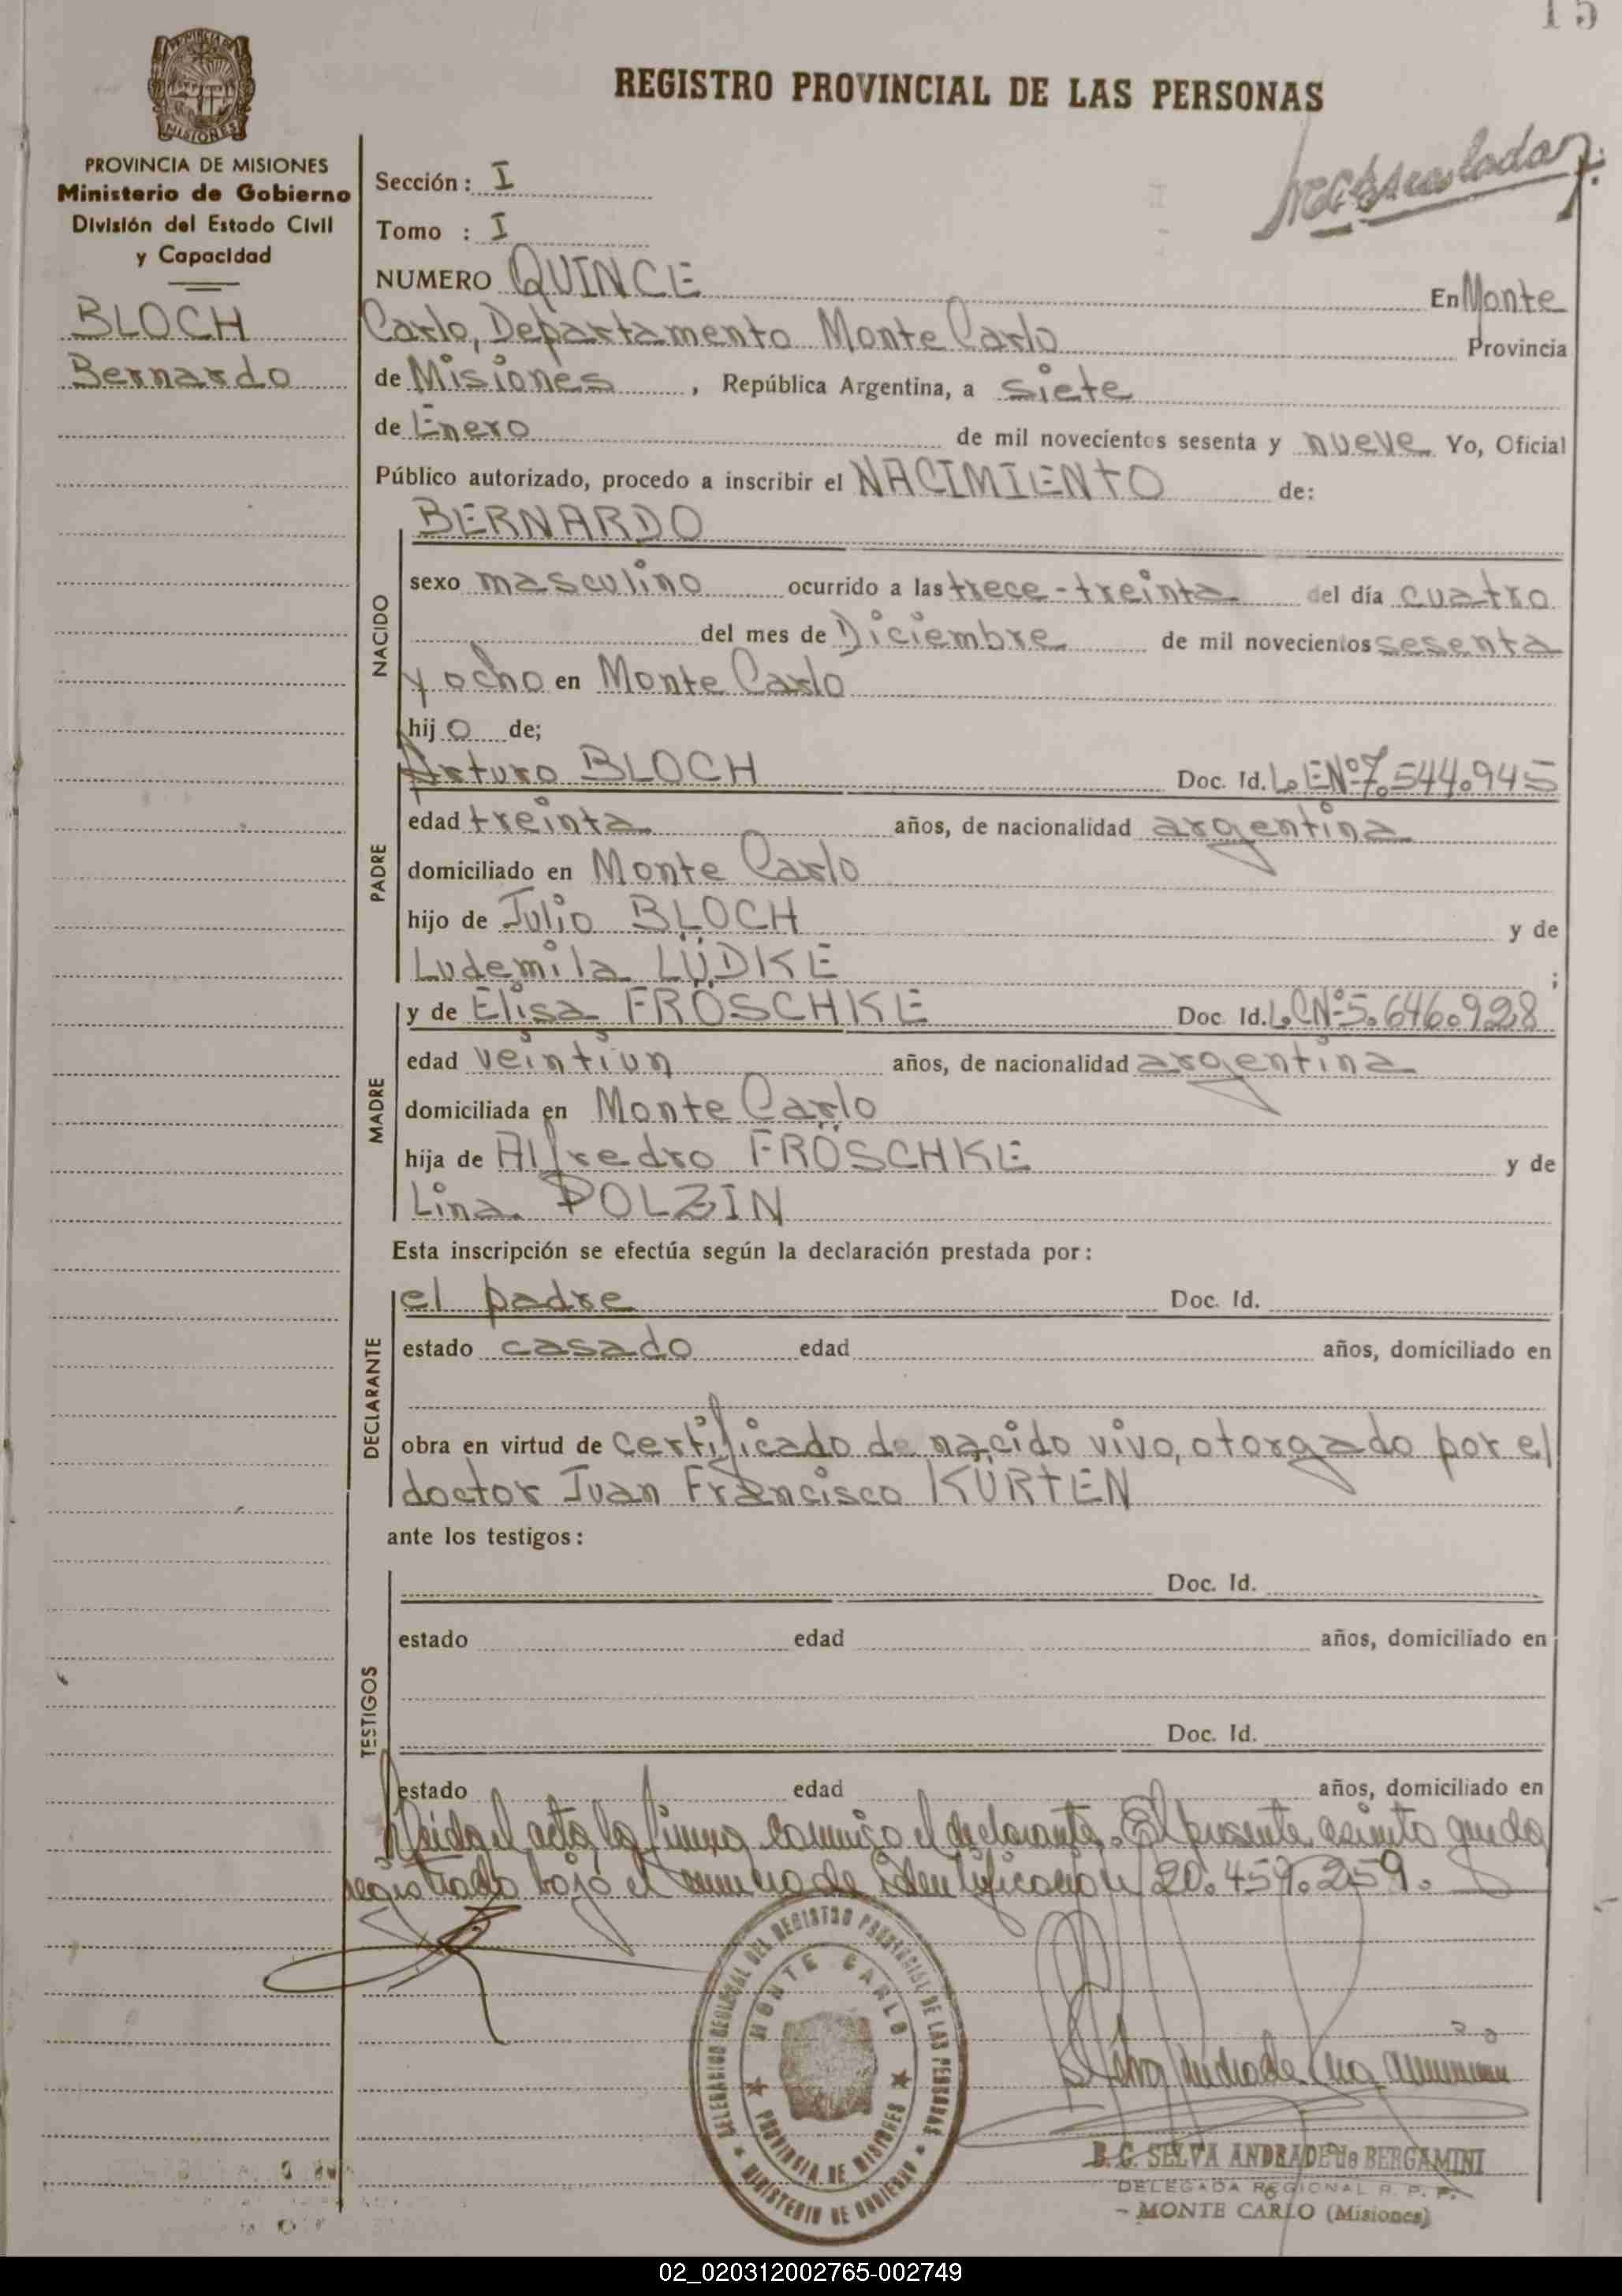 15
REGISTRO PROVINCIAL DE LAS PERSONAS
MISIONES
PROVINCIA DE MISIONES
Ministerio de Gobierno
División del Estado Civil
y Capacidad
BLOCH
Bernardo
Sección: I
Tomo : I
NUMERO QUINCE En Monte
Carlo, Departamento Monte Carlo Provincia
de Misiones, República Argentina, a siete
de Enero de mil novecientos sesenta y nueve Yo, Oficial
Público autorizado, procedo a inscribir el NACIMIENTO de:
NACIDO
BERNARDO
sexo masculino ocurrido a las trece-treinta del día cuatro
del mes de Diciembre de mil novecientos sesenta
y ocho en Monte Carlo
hijo de;
PADRE
Arturo BLOCH Doc. Id. L.E.Nº7.544.945
edad treinta años, de nacionalidad argentina
domiciliado en Monte Carlo
hijo de Julio BLOCH y de
Ludemila LÜDKE ;
MADRE
y de Elisa FRÖSCHKE Doc. Id. L.C.Nº5.646.928
edad veintiun años, de nacionalidad argentina
domiciliada en Monte Carlo
hija de Alfredo FRÖSCHKE y de
Lina POLZIN
Esta inscripción se efectúa según la declaración prestada por:
DECLARANTE
el padre Doc. Id.
estado casado edad años, domiciliado en
obra en virtud de certificado de nacido vivo, otorgado por el
doctor Juan Francisco KÜRTEN
ante los testigos:
TESTIGOS
Doc. Id.
estado edad años, domiciliado en
Doc. Id.
estado edad años, domiciliado en
Leida el acta, la firma conmigo el declarante. El presente asiento queda
registrado bajo el numero de identificación 20.459.259.
DELEGACION REGIONAL DEL REGISTRO PROVINCIAL DE LAS PERSONAS
MONTE CARLO
PROVINCIA DE MISIONES
MINISTERIO DE GOBIERNO
B. G. SELVA ANDRADE de BERGAMINI
DELEGADA REGIONAL R. P. P.
- MONTE CARLO (Misiones)
02_020312002765-002749